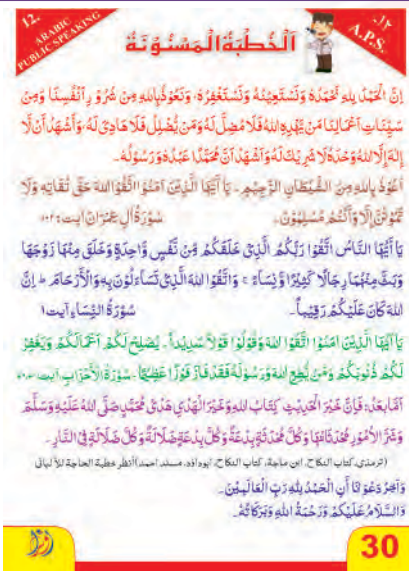 12.
ARABIC
PUBLIC SPEAKING
۱۲.
A.P.S.
اَلْخُطْبَةُ الْمَسْنُوْنَةُ
اِنَّ الْحَمْدَ لِلهِ نَحْمَدُهٗ وَنَسْتَعِيْنُهٗ وَنَسْتَغْفِرُهٗ، وَنَعُوْذُ بِاللهِ مِنْ شُرُوْرِ اَنْفُسِنَا وَمِنْ
سَيِّئَاتِ اَعْمَالِنَا مَنْ يَّهْدِهِ اللهُ فَلَا مُضِلَّ لَهٗ وَمَنْ يُّضْلِلْ فَلَا هَادِيَ لَهٗ، وَاَشْهَدُ اَنْ لَّا
اِلٰهَ اِلَّا اللهُ وَحْدَهٗ لَا شَرِيْكَ لَهٗ وَاَشْهَدُ اَنَّ مُحَمَّدًا عَبْدُهٗ وَرَسُوْلُهٗ۔
اَعُوْذُ بِاللهِ مِنَ الشَّيْطَانِ الرَّجِيْمِ۔ يَا اَيُّهَا الَّذِيْنَ اٰمَنُوْا اتَّقُوا اللهَ حَقَّ تُقَاتِهٖ وَلَا
تَمُوْتُنَّ اِلَّا وَاَنْتُمْ مُّسْلِمُوْنَ۔ سُوْرَةُ اٰلِ عِمْرَانَ اٰيت:۱۰۲
يَا اَيُّهَا النَّاسُ اتَّقُوْا رَبَّكُمُ الَّذِيْ خَلَقَكُمْ مِّنْ نَّفْسٍ وَّاحِدَةٍ وَّخَلَقَ مِنْهَا زَوْجَهَا
وَبَثَّ مِنْهُمَا رِجَالًا كَثِيْرًا وَّنِسَاءً ۚ وَاتَّقُوا اللهَ الَّذِيْ تَسَاءَلُوْنَ بِهٖ وَالْاَرْحَامَ ط اِنَّ
اللهَ كَانَ عَلَيْكُمْ رَقِيْباً۔ سُوْرَةُ النِّسَاءِ اٰيت ۱
يَا اَيُّهَا الَّذِيْنَ اٰمَنُوْا اتَّقُوا اللهَ وَقُوْلُوْا قَوْلًا سَدِيْداً۔ يُصْلِحْ لَكُمْ اَعْمَالَكُمْ وَيَغْفِرْ
لَكُمْ ذُنُوْبَكُمْ وَمَنْ يُّطِعِ اللهَ وَرَسُوْلَهٗ فَقَدْ فَازَ فَوْزًا عَظِيْمًا۔ سُوْرَةُ الْاَحْزَابِ اٰيت
اَمَّا بَعْدُ: فَاِنَّ خَيْرَ الْحَدِيْثِ كِتَابُ اللهِ وَخَيْرَ الْهَدْيِ هَدْيُ مُحَمَّدٍ صَلَّى اللهُ عَلَيْهِ وَسَلَّمَ
وَشَرَّ الْاُمُوْرِ مُحْدَثَاتُهَا وَكُلَّ مُحْدَثَةٍ بِدْعَةٌ وَكُلَّ بِدْعَةٍ ضَلَالَةٌ وَكُلَّ ضَلَالَةٍ فِي النَّارِ۔
(ترمذي، کتاب النکاح، ابن ماجة، کتاب النکاح، ابوداؤد، مسند احمد) انظر خطبة الحاجة للألباني
وَاٰخِرُ دَعْوَانَا اَنِ الْحَمْدُ لِلّٰهِ رَبِّ الْعَالَمِيْنَ۔
وَالسَّلَامُ عَلَيْكُمْ وَرَحْمَةُ اللهِ وَبَرَكَاتُهٗ۔
30